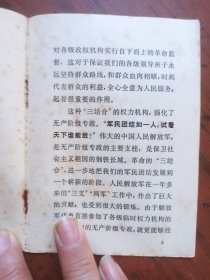 对各级政权机构实行自下而上的革命监
督，这对于保证我们的各级领导班子永
远坚持群众路线，和群众血肉相联，时刻
代表群众的利益，全心全意为人民服务，
起着很重要的作用。
这种“三结合”的权力机构，强化了
无产阶级专政。“军民团结如一人，试看
天下谁能敌？”伟大的中国人民解放军，
是无产阶级专政的主要支柱，是保卫社
会主义祖国的钢铁长城。革命的“三结
合”，进一步地把我们的军民团结发展到
一个崭新的阶段。人民解放军在一年多
来的“三支”“两军”工作中，作出了巨大
的贡献，也受到很大的锻炼。由于解放
军代表直接参加了各级临时权力机构的
的无产阶级专政，就更能够经
3